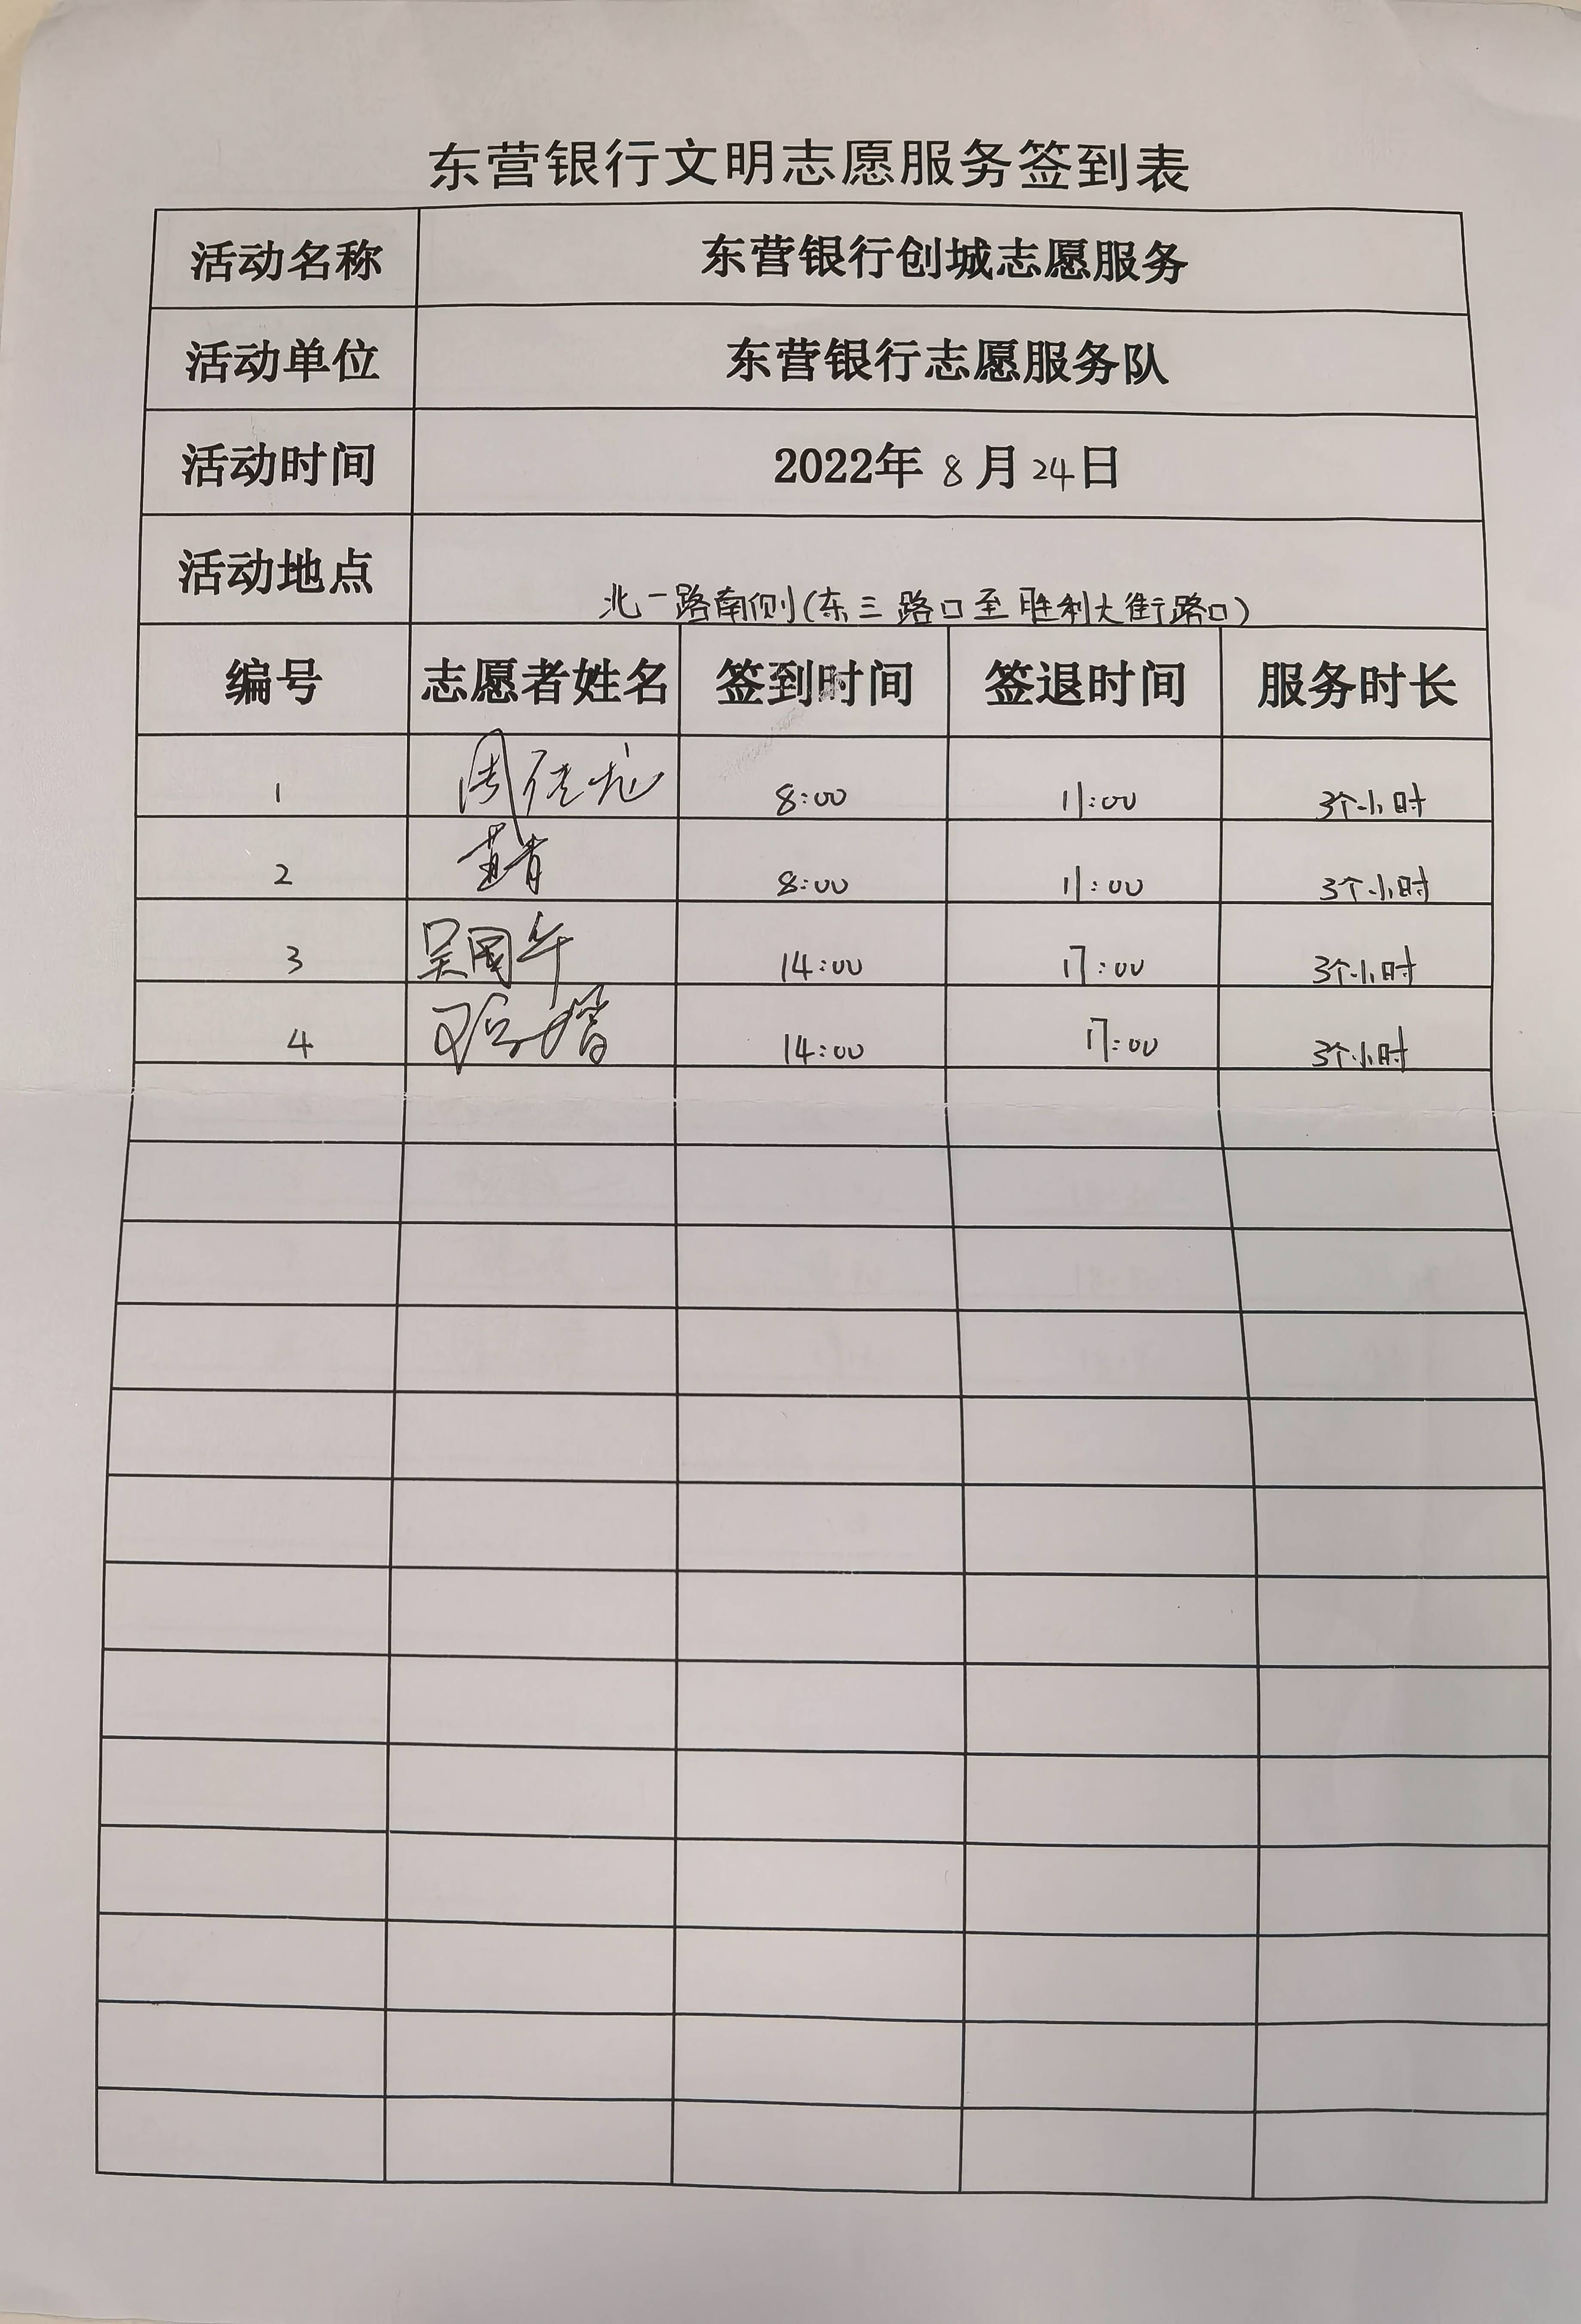 东营银行文明志愿服务签到表
活动名称 东营银行创城志愿服务
活动单位 东营银行志愿服务队
活动时间 2022年8月24日
活动地点 北一路南侧(东三路口至胜利大街路口)
编号 志愿者姓名 签到时间 签退时间 服务时长
1 8:00 11:00 3个小时
2 8:00 11:00 3个小时
3 吴国华 14:00 17:00 3个小时
4 14:00 17:00 3个小时